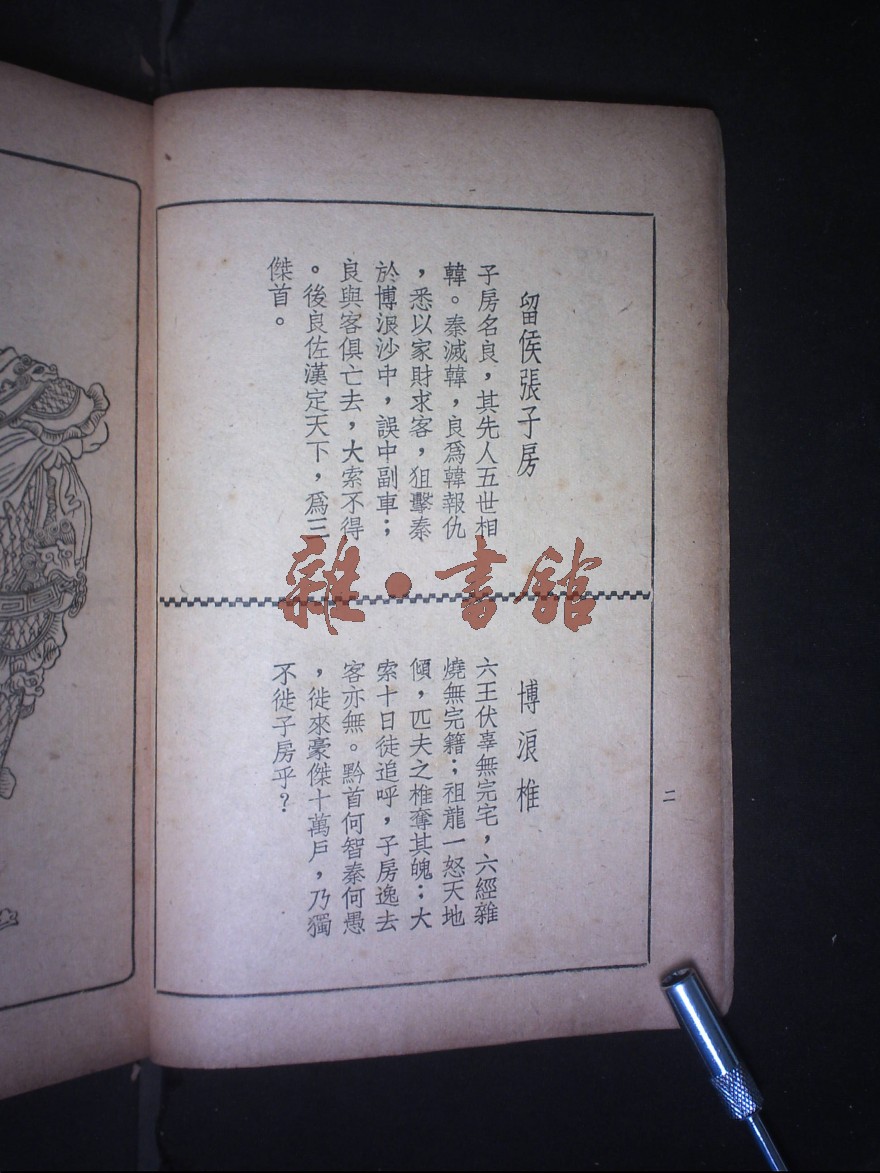 留侯張子房
子房名良，其先人五世相
韓。秦滅韓，良爲韓報仇
，悉以家財求客，狙擊秦
於博浪沙中，誤中副車；
良與客俱亡去，大索不得
。後良佐漢定天下，爲三
傑首。
博浪椎
六王伏辜無完宅，六經雜
燒無完籍；祖龍一怒天地
傾，匹夫之椎奪其魄：大
索十日徒追呼，子房逸去
客亦無。黔首何智秦何愚
，徙來豪傑十萬戶，乃獨
不徙子房乎？
二
雜·書館